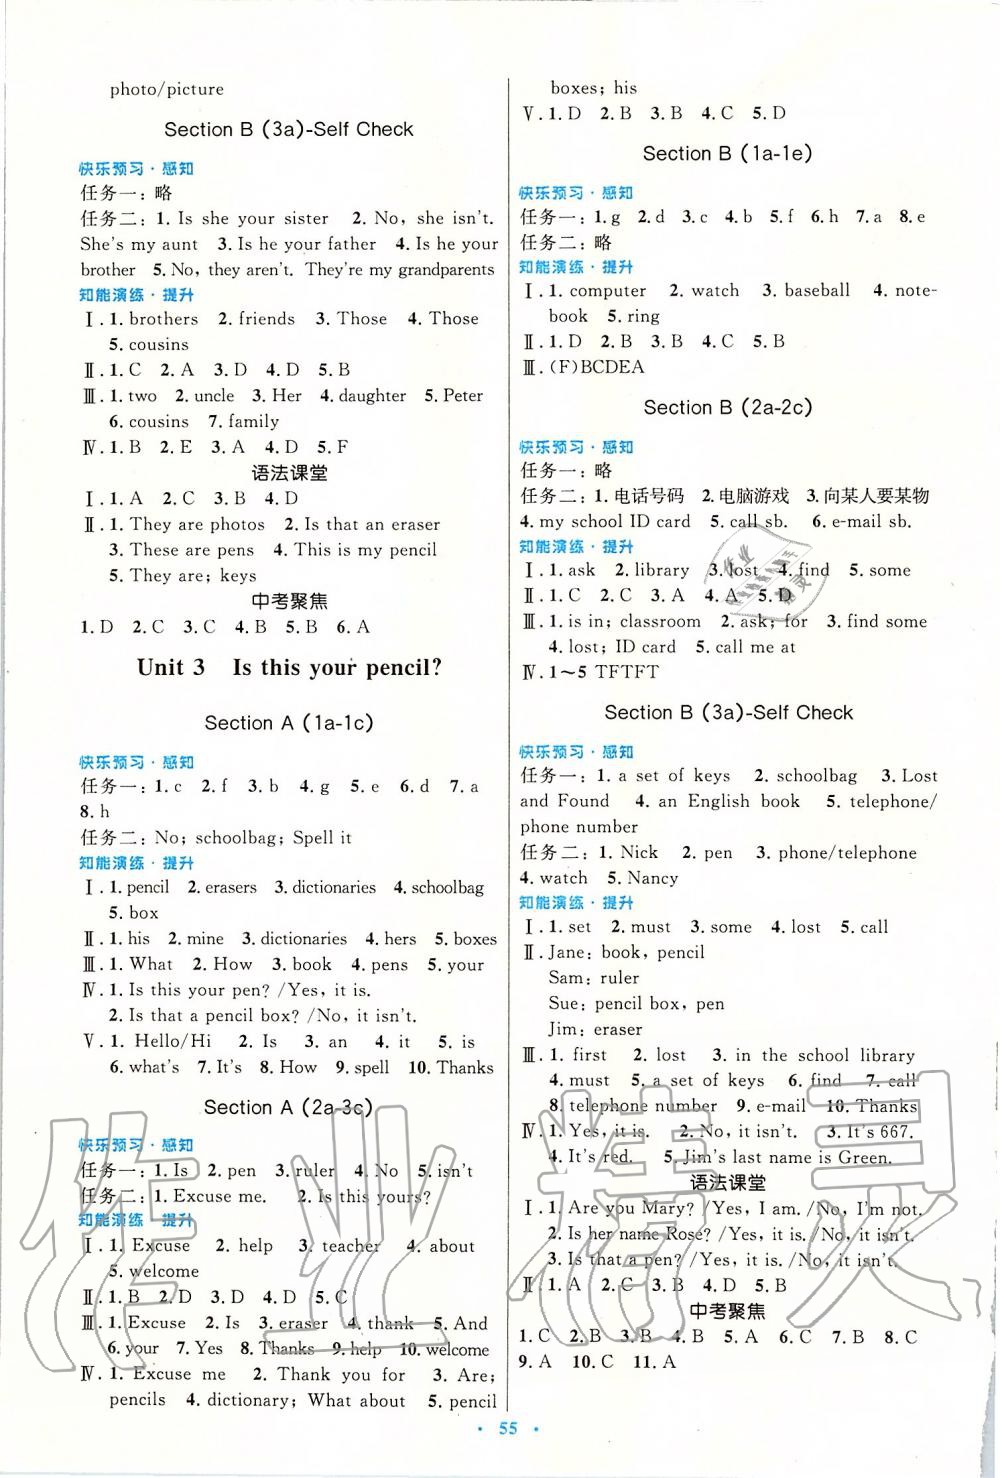 photo/picture
Section B (3a)-Self Check
快乐预习·感知
任务一：略
任务二：1. Is she your sister 2. No, she isn't.
She's my aunt 3. Is he your father 4. Is he your
brother 5. No, they aren't. They're my grandparents
知能演练·提升
Ⅰ. 1. brothers 2. friends 3. Those 4. Those
5. cousins
Ⅱ. 1. C 2. A 3. D 4. D 5. B
Ⅲ. 1. two 2. uncle 3. Her 4. daughter 5. Peter
6. cousins 7. family
Ⅳ. 1. B 2. E 3. A 4. D 5. F
语法课堂
Ⅰ. 1. A 2. C 3. B 4. D
Ⅱ. 1. They are photos 2. Is that an eraser
3. These are pens 4. This is my pencil
5. They are; keys
中考聚焦
1. D 2. C 3. C 4. B 5. B 6. A
Unit 3 Is this your pencil?
Section A (1a-1c)
快乐预习·感知
任务一：1. c 2. f 3. b 4. g 5. e 6. d 7. a
8. h
任务二：No; schoolbag; Spell it
知能演练·提升
Ⅰ. 1. pencil 2. erasers 3. dictionaries 4. schoolbag
5. box
Ⅱ. 1. his 2. mine 3. dictionaries 4. hers 5. boxes
Ⅲ. 1. What 2. How 3. book 4. pens 5. your
Ⅳ. 1. Is this your pen? /Yes, it is.
2. Is that a pencil box? /No, it isn't.
Ⅴ. 1. Hello/Hi 2. Is 3. an 4. it 5. is
6. what's 7. It's 8. How 9. spell 10. Thanks
Section A (2a-3c)
快乐预习·感知
任务一：1. Is 2. pen 3. ruler 4. No 5. isn't
任务二：1. Excuse me. 2. Is this yours?
知能演练·提升
Ⅰ. 1. Excuse 2. help 3. teacher 4. about
5. welcome
Ⅱ. 1. B 2. D 3. D 4. D 5. C
Ⅲ. 1. Excuse 2. Is 3. eraser 4. thank 5. And
6. your 7. Yes 8. Thanks 9. help 10. welcome
Ⅳ. 1. Excuse me 2. Thank you for 3. Are;
pencils 4. dictionary; What about 5. pencil
boxes; his
Ⅴ. 1. D 2. B 3. B 4. C 5. D
Section B (1a-1e)
快乐预习·感知
任务一：1. g 2. d 3. c 4. b 5. f 6. h 7. a 8. e
任务二：略
知能演练·提升
Ⅰ. 1. computer 2. watch 3. baseball 4. note-
book 5. ring
Ⅱ. 1. D 2. B 3. B 4. C 5. B
Ⅲ. (F)BCDEA
Section B (2a-2c)
快乐预习·感知
任务一：略
任务二：1. 电话号码 2. 电脑游戏 3. 向某人要某物
4. my school ID card 5. call sb. 6. e-mail sb.
知能演练·提升
Ⅰ. 1. ask 2. library 3. lost 4. find 5. some
Ⅱ. 1. C 2. C 3. A 4. A 5. D
Ⅲ. 1. is in; classroom 2. ask; for 3. find some
4. lost; ID card 5. call me at
Ⅳ. 1～5 TFTFT
Section B (3a)-Self Check
快乐预习·感知
任务一：1. a set of keys 2. schoolbag 3. Lost
and Found 4. an English book 5. telephone/
phone number
任务二：1. Nick 2. pen 3. phone/telephone
4. watch 5. Nancy
知能演练·提升
Ⅰ. 1. set 2. must 3. some 4. lost 5. call
Ⅱ. Jane: book, pencil
Sam: ruler
Sue: pencil box, pen
Jim: eraser
Ⅲ. 1. first 2. lost 3. in the school library
4. must 5. a set of keys 6. find 7. call
8. telephone number 9. e-mail 10. Thanks
Ⅳ. 1. Yes, it is. 2. No, it isn't. 3. It's 667.
4. It's red. 5. Jim's last name is Green.
语法课堂
Ⅰ. 1. Are you Mary? /Yes, I am. /No, I'm not.
2. Is her name Rose? /Yes, it is. /No, it isn't.
3. Is that a pen? /Yes, it is. /No, it isn't.
Ⅱ. 1. A 2. C 3. B 4. D 5. B
中考聚焦
1. C 2. B 3. B 4. B 5. A 6. C 7. B 8. C
9. A 10. C 11. A
· 55 ·
作业精灵